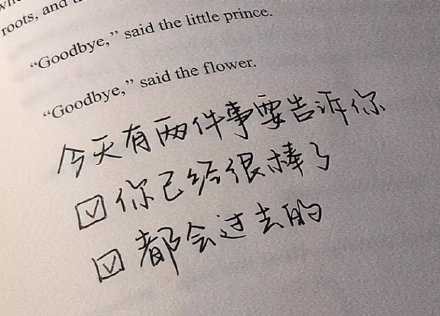 roots, and
“Goodbye,” said the little prince.
“Goodbye,” said the flower.
今天有两件事要告诉你
☑ 你已给很棒了
☑ 都会过去的